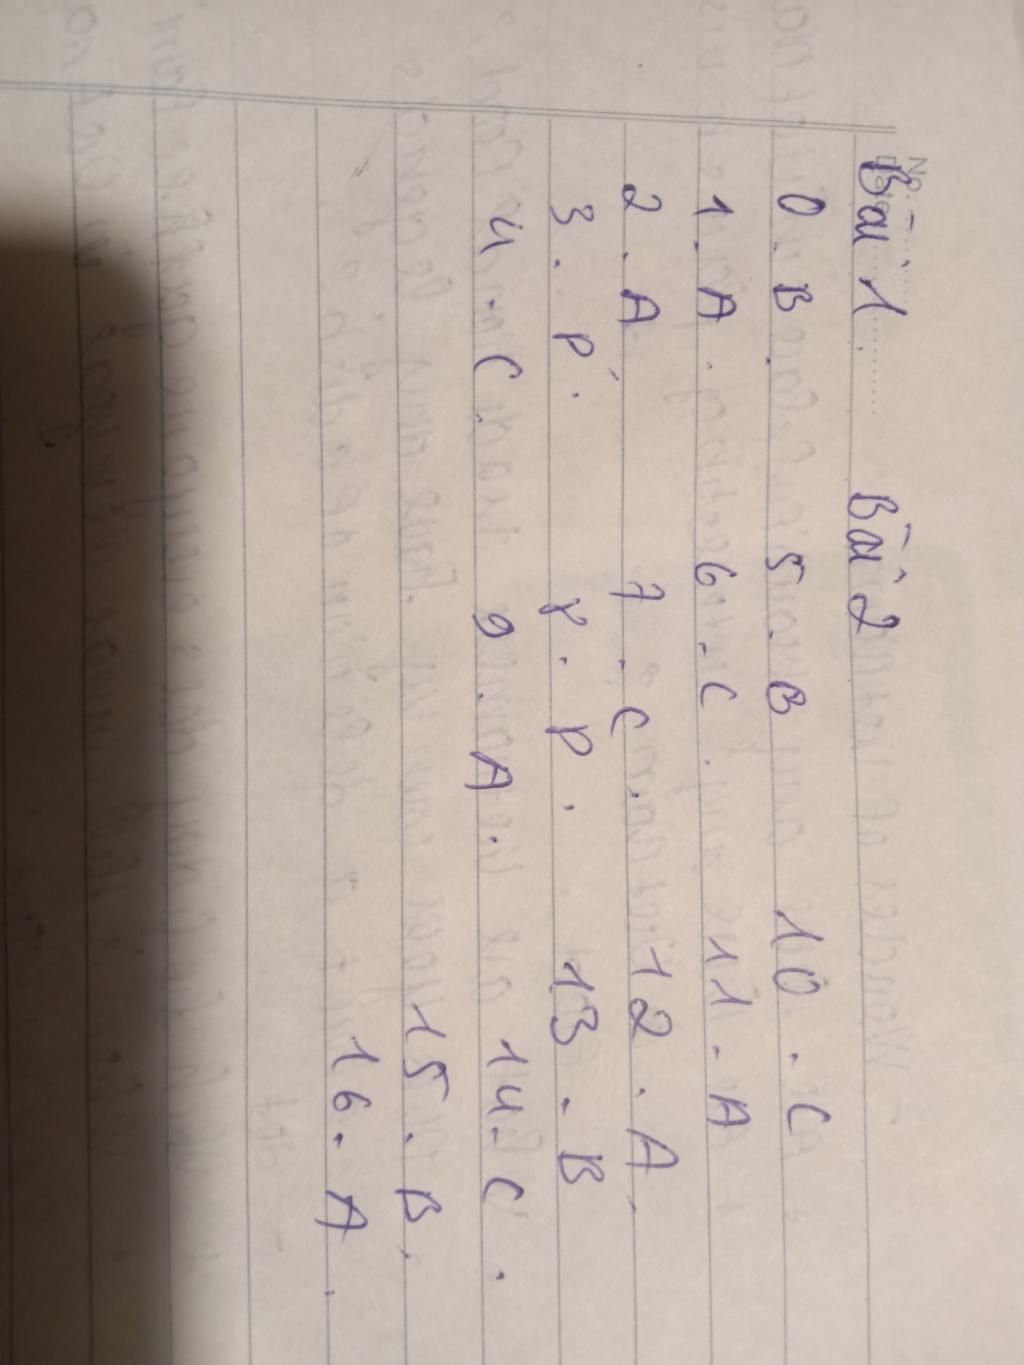 Bài 1 Bài 2
0. B. 5. B 10. C
1. A. 6. C. 11. A
2. A. 7. C. 12. A.
3. P. 8. P. 13. B
4. C. 9. A. 14. C.
15. B.
16. A.